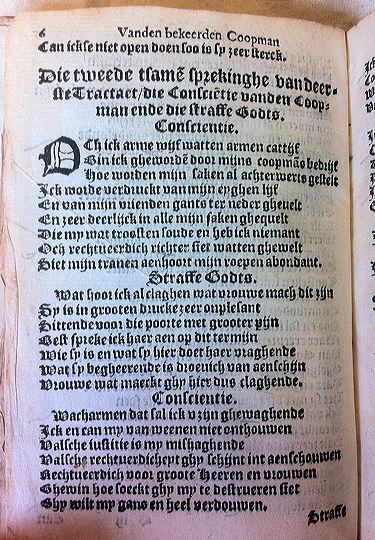 6 Vanden bekeerden Coopman
Can ickse niet open doen soo is sy zeer sterck.
Die tweede tsamē sprekinghe vandeer-
ste Tractaet/die Consciētie vanden Coop-
man ende die straffe Godts.
Conscientie.
Och ick arme wijf watten armen cattijf
Bin ick gheworden door mijns coopmās bedrijf
Hoe worden mijn saken al achterwerts gestelt
Ick worde verdruckt van mijn eyghen lijf
En van mijn vrienden gants ter neder ghevelt
En zeer deerlijck in alle mijn saken ghequelt
Die my wat troosten soude en heb ick niemant
Och rechtueerdich richter siet watten ghewelt
Siet mijn tranen aenhoort mijn roepen abondant.
Straffe Godts.
Wat hoor ick al claghen wat vrouwe mach dit zijn
Sy is in grooten drucke zeer onplesant
Sittende voor die poorte met grooter pijn
Best spreke ick haer aen op dit termijn
Wie sy is en wat sy hier doet haer vraghende
Wat sy begheerende is droeuich van aenschijn
Vrouwe wat maeckt ghy hier dus claghende.
Conscientie.
Wacharmen dat sal ick v zijn ghewaghende
Ick en can my van weenen niet onthouwen
Valsche iustitie is my mishaghende
Valsche rechtuerdicheyt ghy schijnt int aenschouwen
Rechtueerdich voor groote Heeren en vrouwen
Ghewin hoe soeckt ghy my te destrueren siet
Ghy wilt my gans en heel verdouwen.
Straffe